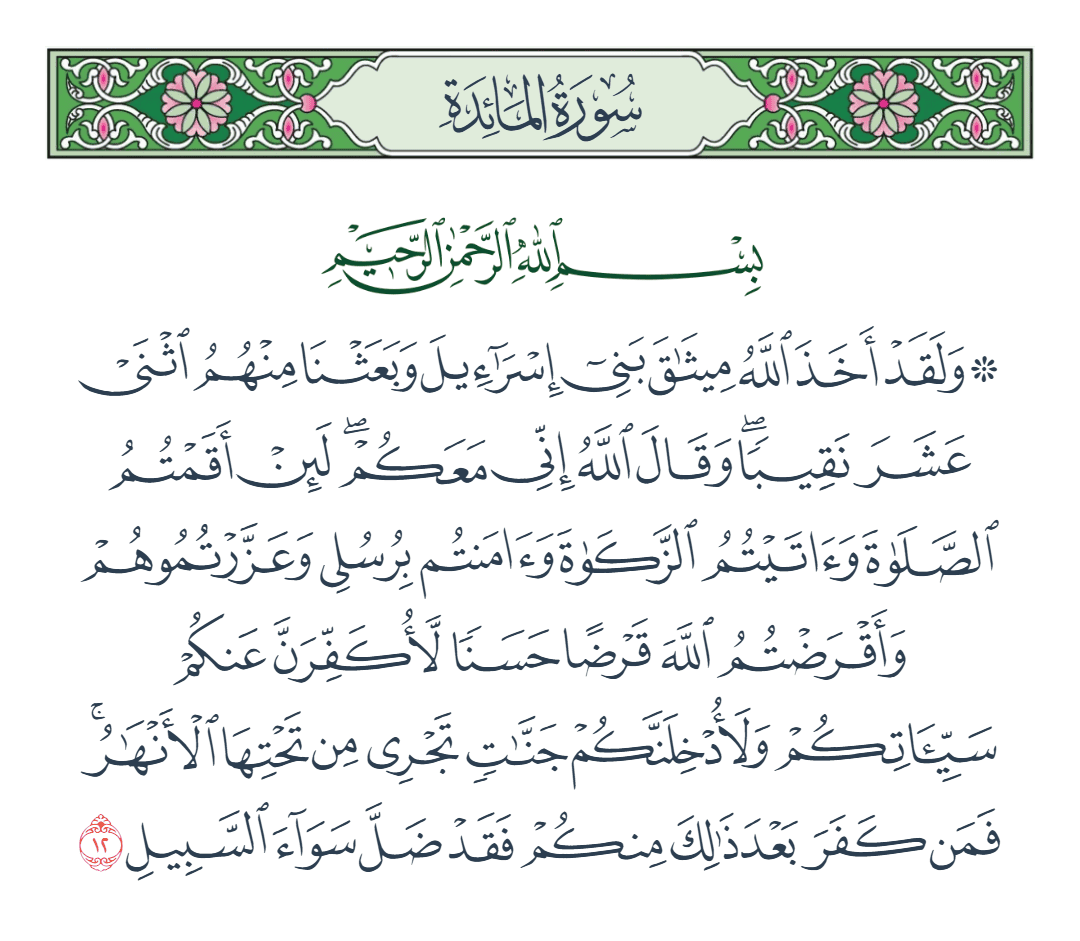 سُورَةُ المَائِدَةِ
بِسْمِ ٱللَّهِ ٱلرَّحْمَٰنِ ٱلرَّحِيمِ
۞ وَلَقَدْ أَخَذَ ٱللَّهُ مِيثَٰقَ بَنِىٓ إِسْرَٰٓءِيلَ وَبَعَثْنَا مِنْهُمُ ٱثْنَىْ
عَشَرَ نَقِيبًۭا ۖ وَقَالَ ٱللَّهُ إِنِّى مَعَكُمْ ۖ لَئِنْ أَقَمْتُمُ
ٱلصَّلَوٰةَ وَءَاتَيْتُمُ ٱلزَّكَوٰةَ وَءَامَنتُم بِرُسُلِى وَعَزَّرْتُمُوهُمْ
وَأَقْرَضْتُمُ ٱللَّهَ قَرْضًا حَسَنًۭا لَّأُكَفِّرَنَّ عَنكُمْ
سَيِّـَٔاتِكُمْ وَلَأُدْخِلَنَّكُمْ جَنَّٰتٍۢ تَجْرِى مِن تَحْتِهَا ٱلْأَنْهَٰرُ ۚ
فَمَن كَفَرَ بَعْدَ ذَٰلِكَ مِنكُمْ فَقَدْ ضَلَّ سَوَآءَ ٱلسَّبِيلِ ١٢